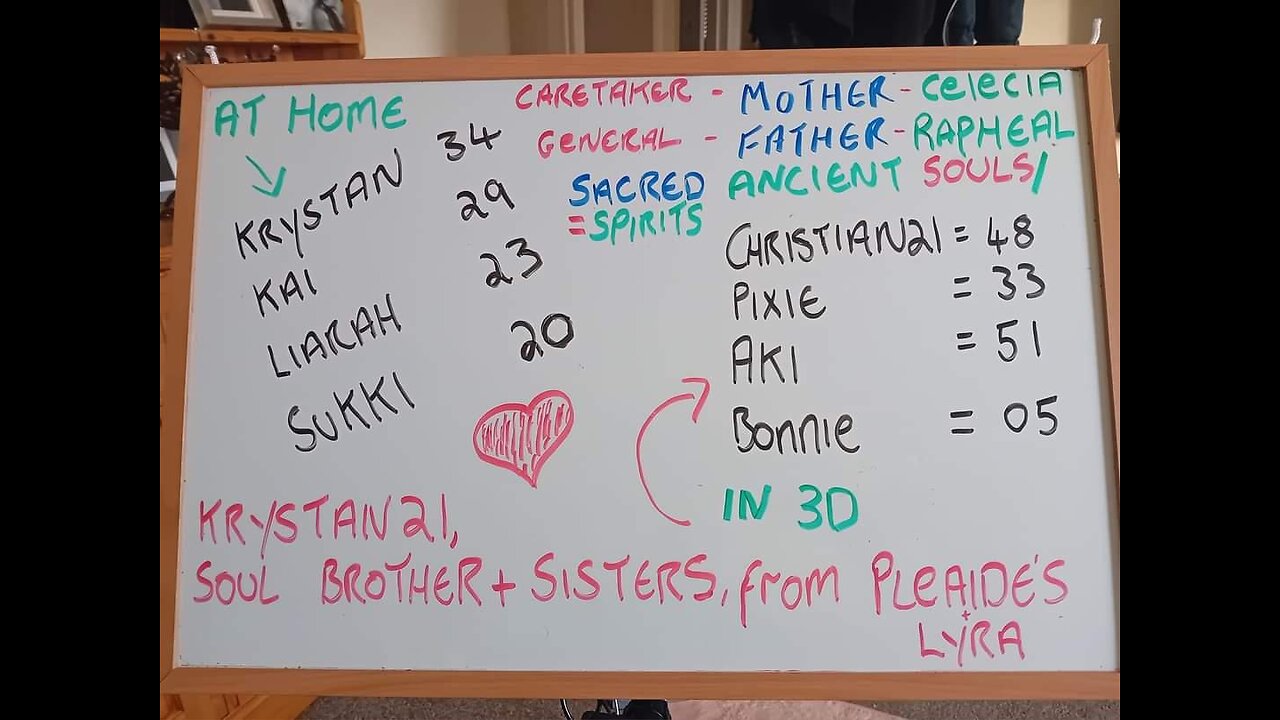 AT HOME
CARETAKER - MOTHER - CeleCIA
GENERAL - FATHER - RAPHEAL
SACRED ANCIENT SOULS/
= SPIRITS
KRYSTAN 34
KAI 29
LIARAH 23
SUKKI 20
CHRISTIAN21 = 48
PIXIE = 33
AKI = 51
Bonnie = 05
IN 3D
KRYSTAN 21,
SOUL BROTHER + SISTERS, from PLEAIDE'S
+
LYRA